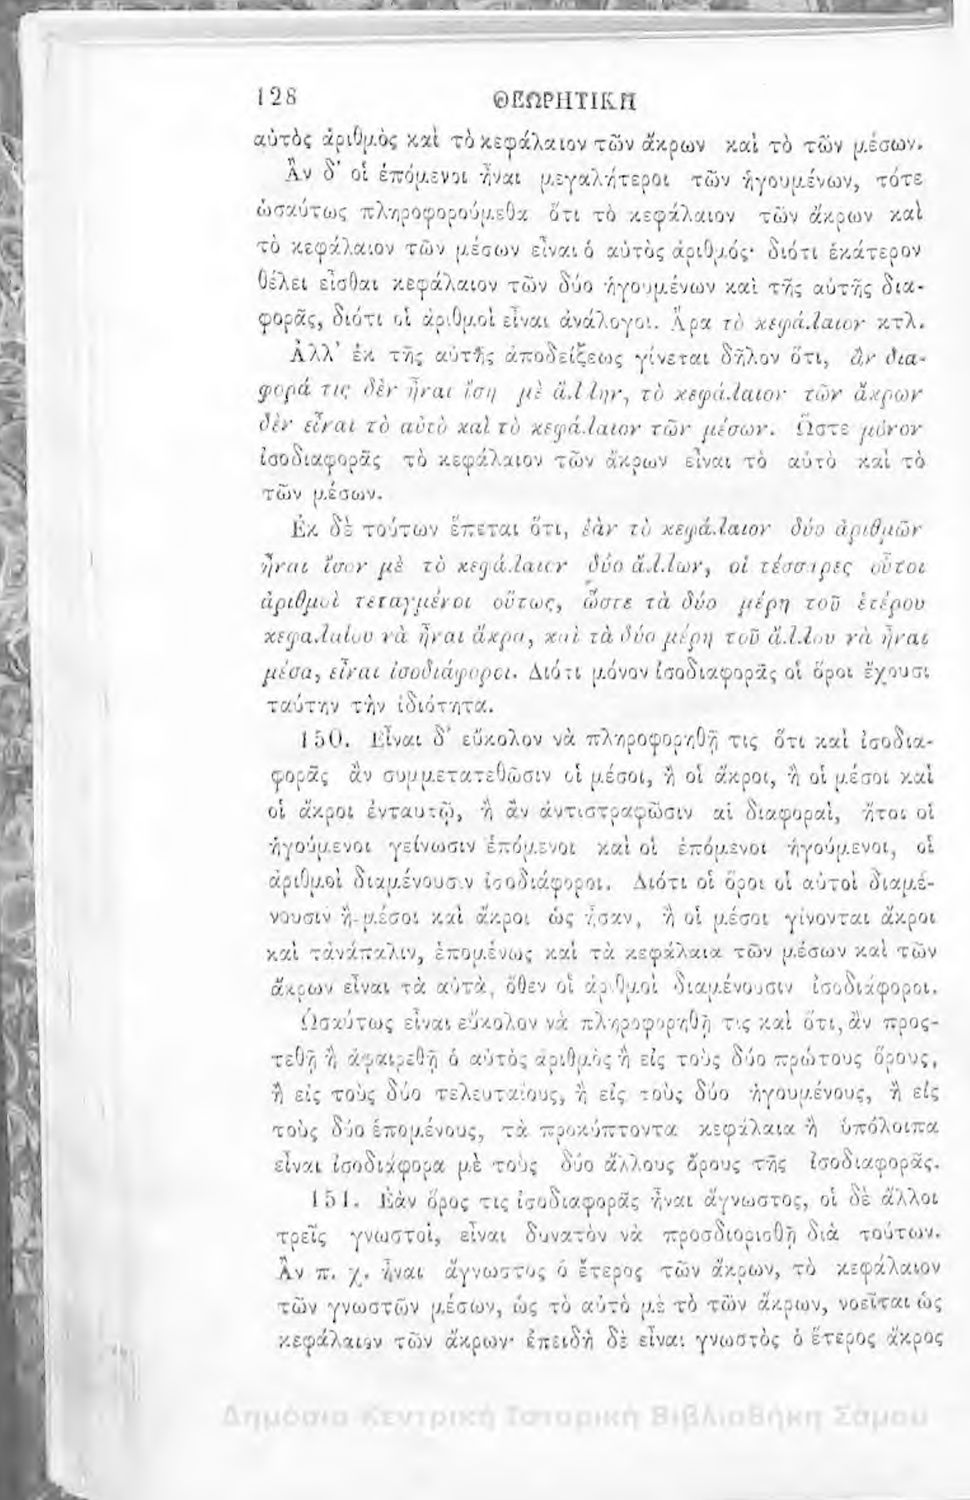 128 ΘΕΩΡΗΤΙΚΗ
αὐτὸς ἀριθμὸς καὶ τὸ κεφάλαιον τῶν ἄκρων καὶ τὸ τῶν μέσων.
Ἂν δ' οἱ ἑπόμενοι ἦναι μεγαλήτεροι τῶν ἡγουμένων, τότε
ὡσαύτως πληροφορούμεθα ὅτι τὸ κεφάλαιον τῶν ἄκρων καὶ
τὸ κεφάλαιον τῶν μέσων εἶναι ὁ αὐτὸς ἀριθμός· διότι ἑκάτερον
θέλει εἶσθαι κεφάλαιον τῶν δύο ἡγουμένων καὶ τῆς αὐτῆς δια-
φορᾶς, διότι οἱ ἀριθμοὶ εἶναι ἀνάλογοι. Ἄρα τὸ κεφάλαιον κτλ.
Ἀλλ' ἐκ τῆς αὐτῆς ἀποδείξεως γίνεται δῆλον ὅτι, ἂν δια-
φορά τις δὲν ἦναι ἴση μὲ ἄλλην, τὸ κεφάλαιον τῶν ἄκρων
δὲν εἶναι τὸ αὐτὸ καὶ τὸ κεφάλαιον τῶν μέσων. Ὥστε μόνον
ἰσοδιαφορᾶς τὸ κεφάλαιον τῶν ἄκρων εἶναι τὸ αὐτὸ καὶ τὸ
τῶν μέσων.
Ἐκ δὲ τούτων ἕπεται ὅτι, ἐὰν τὸ κεφάλαιον δύο ἀριθμῶν
ἦναι ἴσον μὲ τὸ κεφάλαιον δύο ἄλλων, οἱ τέσσαρες οὗτοι
ἀριθμοὶ τεταγμένοι οὕτως, ὥστε τὰ δύο μέρη τοῦ ἑτέρου
κεφαλαίου νὰ ἦναι ἄκρα, καὶ τὰ δύο μέρη τοῦ ἄλλου νὰ ἦναι
μέσα, εἶναι ἰσοδιάφοροι. Διότι μόνον ἰσοδιαφορᾶς οἱ ὅροι ἔχουσι
ταύτην τὴν ἰδιότητα.
150. Εἶναι δ' εὔκολον νὰ πληροφορηθῇ τις ὅτι καὶ ἰσοδια-
φορᾶς ἂν συμμετατεθῶσιν οἱ μέσοι, ἢ οἱ ἄκροι, ἢ οἱ μέσοι καὶ
οἱ ἄκροι ἐνταυτῷ, ἢ ἂν ἀντιστραφῶσιν αἱ διαφοραὶ, ἤτοι οἱ
ἡγούμενοι γείνωσιν ἑπόμενοι καὶ οἱ ἑπόμενοι ἡγούμενοι, οἱ
ἀριθμοὶ διαμένουσιν ἰσοδιάφοροι. Διότι οἱ ὅροι οἱ αὐτοὶ διαμέ-
νουσιν ἢ μέσοι καὶ ἄκροι ὡς ἦσαν, ἢ οἱ μέσοι γίνονται ἄκροι
καὶ τἀνάπαλιν, ἑπομένως καὶ τὰ κεφάλαια τῶν μέσων καὶ τῶν
ἄκρων εἶναι τὰ αὐτὰ, ὅθεν οἱ ἀριθμοὶ διαμένουσιν ἰσοδιάφοροι.
Ὡσαύτως εἶναι εὔκολον νὰ πληροφορηθῇ τις καὶ ὅτι, ἂν προς-
τεθῇ ἢ ἀφαιρεθῇ ὁ αὐτὸς ἀριθμὸς ἢ εἰς τοὺς δύο πρώτους ὅρους,
ἢ εἰς τοὺς δύο τελευταίους, ἢ εἰς τοὺς δύο ἡγουμένους, ἢ εἰς
τοὺς δύο ἑπομένους, τὰ προκύπτοντα κεφάλαια ἢ ὑπόλοιπα
εἶναι ἰσοδιάφορα μὲ τοὺς δύο ἄλλους ὅρους τῆς ἰσοδιαφορᾶς.
151. Ἐὰν ὅρος τις ἰσοδιαφορᾶς ἦναι ἄγνωστος, οἱ δὲ ἄλλοι
τρεῖς γνωστοὶ, εἶναι δυνατὸν νὰ προσδιορισθῇ διὰ τούτων.
Ἂν π. χ. ἦναι ἄγνωστος ὁ ἕτερος τῶν ἄκρων, τὸ κεφάλαιον
τῶν γνωστῶν μέσων, ὡς τὸ αὐτὸ μὲ τὸ τῶν ἄκρων, νοεῖται ὡς
κεφάλαιον τῶν ἄκρων· ἐπειδὴ δὲ εἶναι γνωστὸς ὁ ἕτερος ἄκρος
Δημόσια Κεντρική Ιστορική Βιβλιοθήκη Σάμου